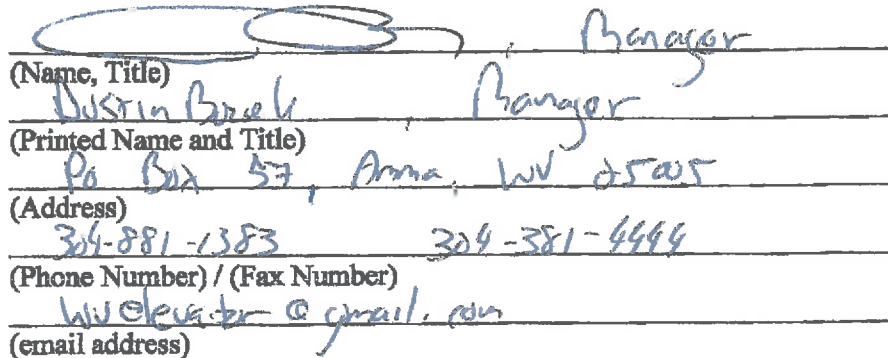 , Manager
(Name, Title)
Dustin , Manager
(Printed Name and Title)
PO Box 57, Amma, WV 25005
(Address)
304-881-1383 304-381-4444
(Phone Number) / (Fax Number)
wvelevator@gmail.com
(email address)